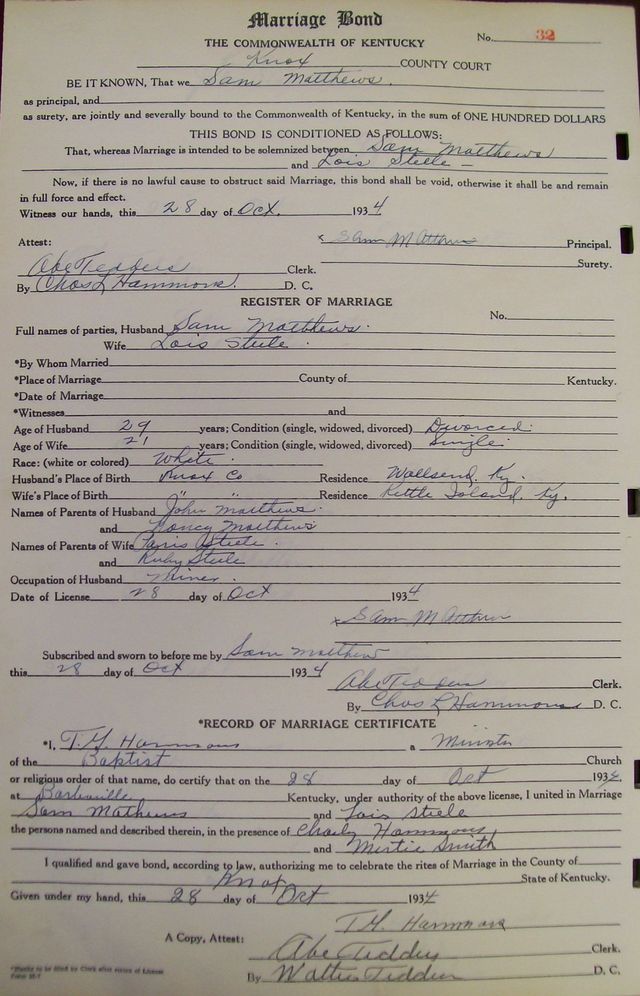 Marriage Bond
THE COMMONWEALTH OF KENTUCKY No. 32
Knox COUNTY COURT
BE IT KNOWN, That we Sam Matthews
as principal, and
as surety, are jointly and severally bound to the Commonwealth of Kentucky, in the sum of ONE HUNDRED DOLLARS
THIS BOND IS CONDITIONED AS FOLLOWS:
That, whereas Marriage is intended to be solemnized between Sam Matthews
and Lois Steele
Now, if there is no lawful cause to obstruct said Marriage, this bond shall be void, otherwise it shall be and remain
in full force and effect.
Witness our hands, this 28 day of Oct. 1934
Attest: x Sam Matthews Principal.
Surety.
Abe Tedders Clerk.
By Chas L Hammons. D. C.
REGISTER OF MARRIAGE
No.
Full names of parties, Husband Sam Matthews.
Wife Lois Steele.
*By Whom Married
*Place of Marriage County of Kentucky.
*Date of Marriage
*Witnesses and
Age of Husband 29 years; Condition (single, widowed, divorced) Divorced.
Age of Wife 21 years; Condition (single, widowed, divorced) Single.
Race: (white or colored) White.
Husband's Place of Birth Knox Co Residence Wallsend, Ky.
Wife's Place of Birth " " Residence Kettle Island, Ky.
Names of Parents of Husband John Matthews.
and Nancy Matthews
Names of Parents of Wife Paris Steele.
and Ruby Steele
Occupation of Husband Miner.
Date of License 28 day of Oct 1934
x Sam Matthews
Subscribed and sworn to before me by Sam Matthew
this 28 day of Oct 1934
Abe Tedders Clerk.
By Chas L Hammons D. C.
*RECORD OF MARRIAGE CERTIFICATE
*I, T. H. Hammons a Minister
of the Baptist Church
or religious order of that name, do certify that on the 28 day of Oct 1934,
at Barbourville Kentucky, under authority of the above license, I united in Marriage
Sam Mathews and Lois Steele
the persons named and described therein, in the presence of Charly Hammons
and Mirtie Smith
I qualified and gave bond, according to law, authorizing me to celebrate the rites of Marriage in the County of
Knox State of Kentucky.
Given under my hand, this 28 day of Oct 1934
T. H. Hammons
A Copy, Attest: Abe Tedders Clerk.
By Walter Tedders D. C.
*Blanks to be filled by Clerk after return of License